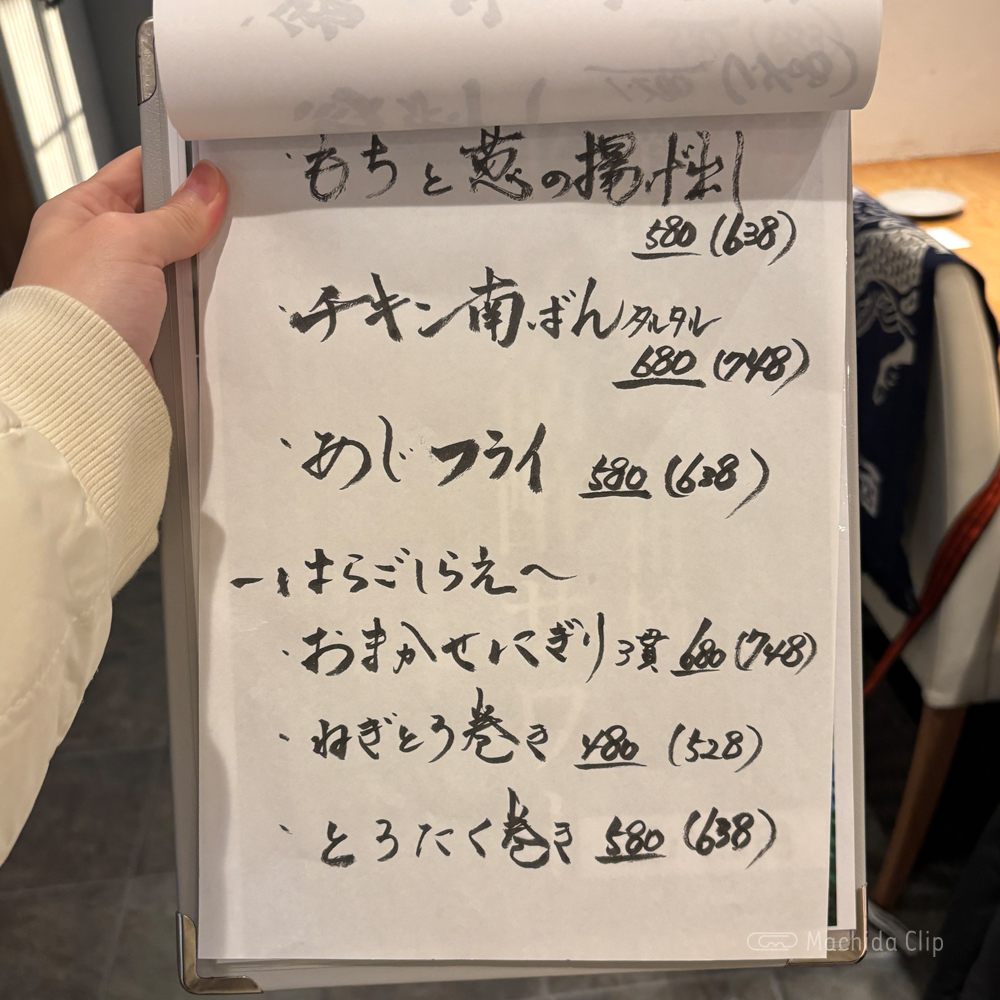 ・もちと葱の揚げ出し
580 (638)
・チキン南ばんタルタル
680 (748)
・あじフライ 580 (638)
ー、はらごしらえへ
・おまかせにぎり3貫 680 (748)
・ねぎとろ巻き 480 (528)
・とろたく巻き 580 (638)
Machida Clip